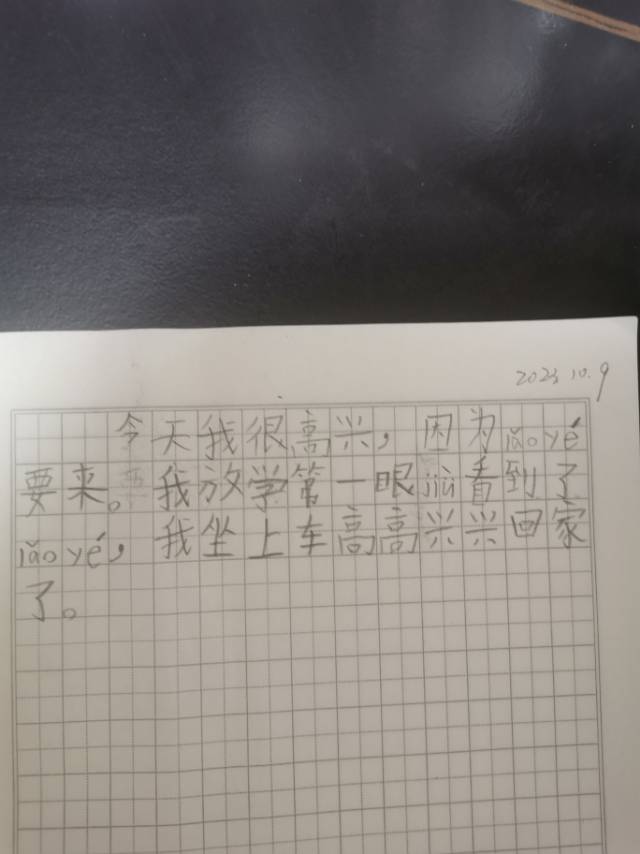 2023.10.9
今天我很高兴，因为lǎo yé
要来。我放学第一眼jiù看到了
lǎo yé，我坐上车高高兴兴回家
了。